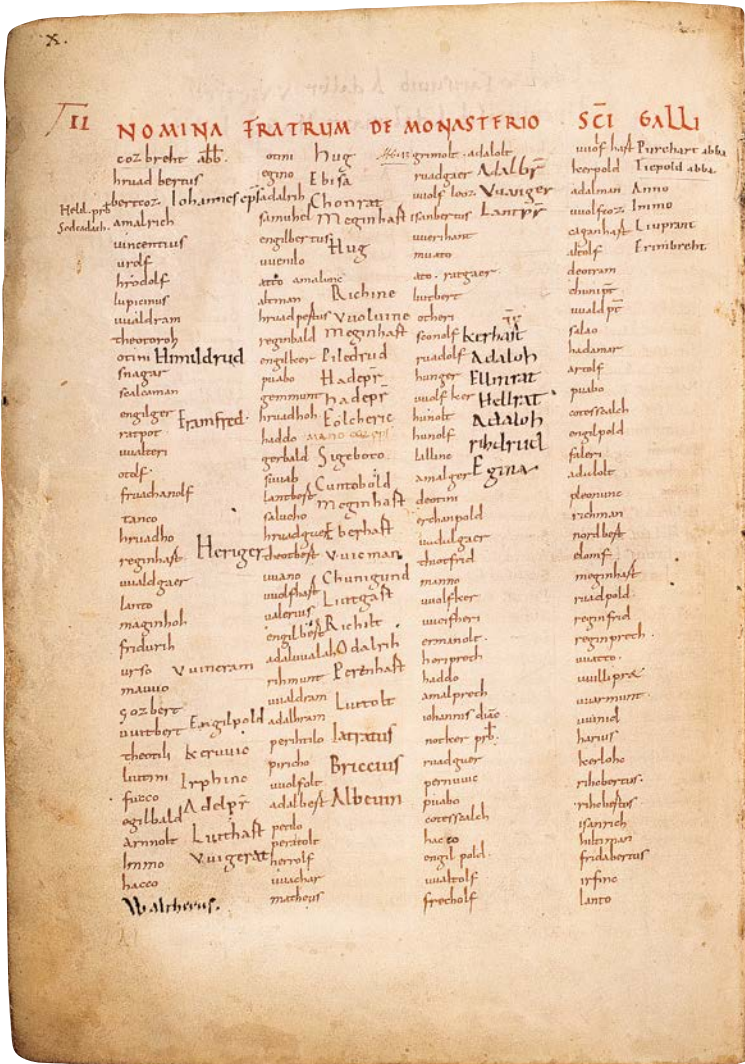 X.
II NOMINA FRATRUM DE MONASTERIO SCI GALLI
cozbreht abb.
hruadbertus
bertcoz. Iohannes eps
amalrich
vincentius
urolf
hrodolf
lupicinus
uualdram
theotoroh
otini Himildrud
snagar
scalcaman
engilger Eramfred.
ratpot
uualteri
otolf.
fruachanolf
tanco
hruadho
reginhast Heriger
uualdgaer
lanto
maginhoh
fridurih
urso Vuineram
mauuo
gozbert
uuitbert Engilpold
theotili Keruuic
liutini Irphinc
fusco Adelpr
ogilbald
arnnolt Luithast
Immo Vuigerat
hacco
Waltherus.
otini Hug
egino Ebisa
adalrih Chonrat
samuhel Meginhast
engilbertus Hug
uuenilo
atto amalunc
atman Richine
hruadpertus Vuoluine
reginbald Meginhast
engilker Piledrud
puabo Hadepr
gemmunt hadepr
hruadhoh Eolcheric
haddo
gerbald Sigeboto
suuab Cuntobold
lantbert Meginhast
salucho
hruadguer Eberhast
theotbert Vuieman
uuano Chunigund
uuolfhast Liutgast
valerius
engilbert Richilt
adaluualah Odalrih
rihmunt Perenhast
uualdram Liutolt
adalbram
perihtilo Iatratus
piricho Briccius
uuolfolt
adalbert Albcuin
petlo
peratolt
herrolf
uuachar
matheus
grimolt. adalolt
ruadgaer Adalbr
uuolfleoz Vuanger
isanbertus Lantpr
uuerihant
muato
ato. ratgaer
liutbert
otheri
seonolf Kerhast
ruadolf Adaloh
hunger Ellinrat
uuolfker Hellrat
hunolt Adaloh
hunolf rihdrud
lilline
amalger Egina
deotini
erchanpold
uuldulgaer
theotfrid
manno
uuolfker
uuerfheri
ermanolt.
heriprech
haddo
amalprech
iohannis diac
notker prb.
ruadguer
pernuuic
puabo
cotesscalch
hacco
engilpold.
uualtolf
frecholf
uuolfhast Purchart abba
keerpold Tiepold abba.
adalman Anno
uuolfcoz Immo
caganhast Liuprant
altolf Erimbreht
deotram
chunipt
uuald pt
salao
hadamar
artolf
puabo
cotesscalch
engilpold
faleri
adilolt
pleonunc
richman
nordbert
elomf
meginhast
ruadpold.
reginfrid
reginprech.
uuatto.
uuarmunt.
uuinid
harius
kerloho
rihobertus.
rihobertus
isanrich
hiltiman
fridabertus
irfinc
lanto